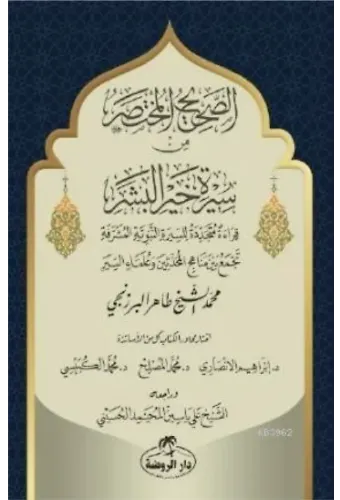 الصحيح المختصر
من
سيرة خير البشر
قراءة متجددة للسيرة النبوية المشرفة
تجمع بين مناهج المحدثين وعلماء السير
محمد الشيخ طاهر البرزنجي
اختار محاور الكتاب كل من الأساتذة
د. إبراهيم الانصاري د. محمد المصلح د. محمد الكبيسي
وراجعه
الشيخ علي ياسين المحيمد الحسيني
دار الروضة